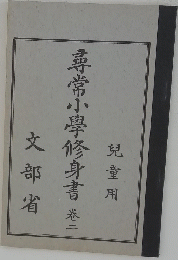 兒童用
尋常小學修身書 卷二
文部省